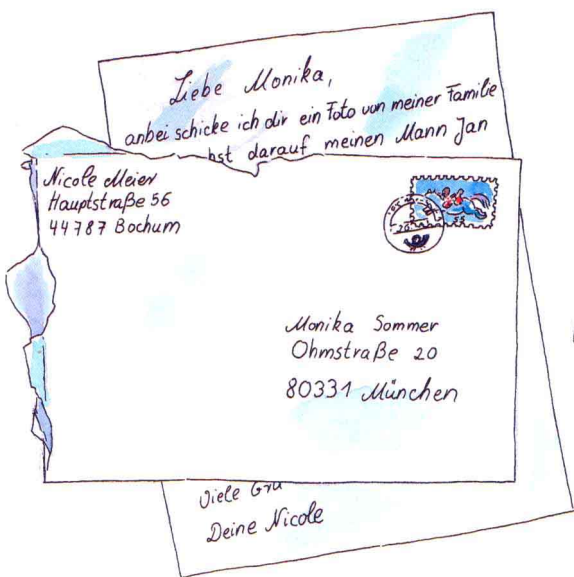 Liebe Monika,
anbei schicke ich dir ein Foto von meiner Familie
darauf meinen Mann Jan
Nicole Meier
Hauptstraße 56
44787 Bochum
Monika Sommer
Ohmstraße 20
80331 München
Viele
Deine Nicole